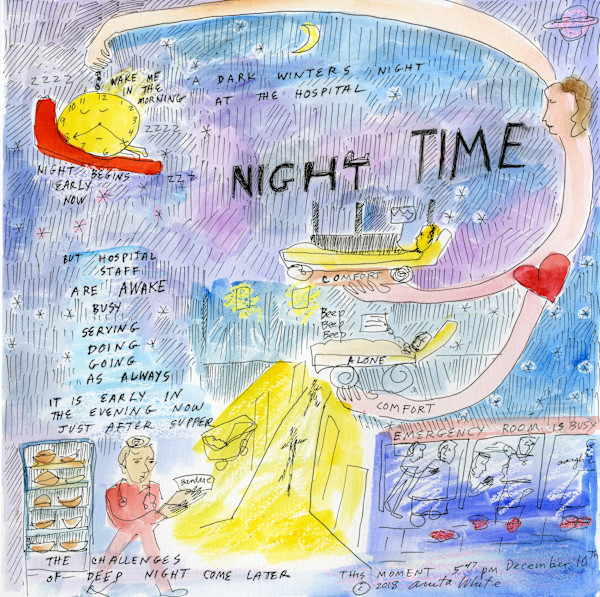 ZZZZ
WAKE ME
IN THE
MORNING
A DARK WINTERS NIGHT
AT THE HOSPITAL
12
1
2
3
4
6
8
9
10
11
ZZZZ
ZZZ
NIGHT TIME
NIGHT BEGINS
EARLY
NOW
COMFORT
BUT HOSPITAL
STAFF
ARE AWAKE
BUSY
SERVING
DOING
GOING
AS ALWAYS
IT IS EARLY IN
THE EVENING NOW
JUST AFTER SUPPER
BEEP
BEEP
BEEP!
ALONE
COMFORT
EMERGENCY ROOM IS BUSY
aarghh
THE CHALLENGES
OF DEEP NIGHT COME LATER
THIS MOMENT 5:47 pm December 10th
© 2018 Anita White